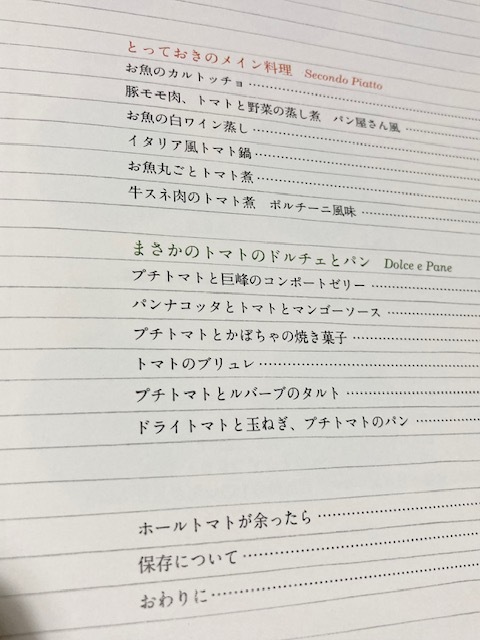 とっておきのメイン料理 Secondo Piatto
お魚のカルトッチョ
豚モモ肉、トマトと野菜の蒸し煮 パン屋さん風
お魚の白ワイン蒸し
イタリア風トマト鍋
お魚丸ごとトマト煮
牛スネ肉のトマト煮 ポルチーニ風味
まさかのトマトのドルチェとパン Dolce e Pane
プチトマトと巨峰のコンポートゼリー
パンナコッタとトマトとマンゴーソース
プチトマトとかぼちゃの焼き菓子
トマトのブリュレ
プチトマトとルバーブのタルト
ドライトマトと玉ねぎ、プチトマトのパン
ホールトマトが余ったら
保存について
おわりに